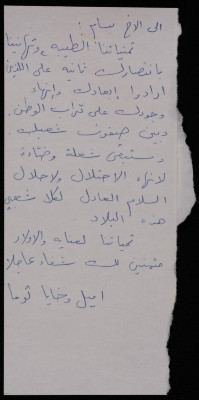 الى الاخ بسام :
تمنياتنا الطيبه وتهنئتنا
بانتصارك ثانية على اللذين
ارادوا إبعادك وإنهاء
وجودك على تراب الوطن.
وبين صفوف شعبك.
وستبقى شعلة وضاءة
لانهاء الاحتلال ولاحلال
السلام العادل لكلا شعبي
هذه البلاد.
تحياتنا لعنايه والاولاد
متمنين لك شفاء عاجلا
اميل وخايا توما